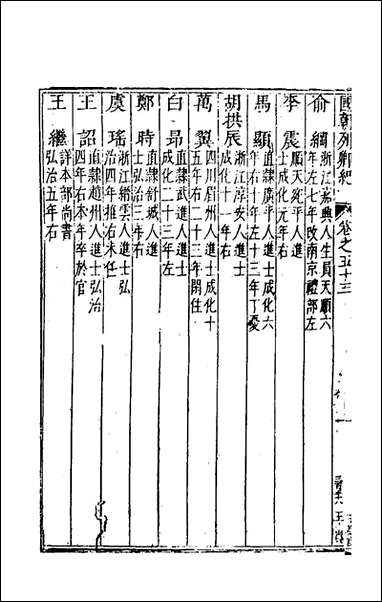 國朝列卿紀 卷之五十三
俞綱 浙江嘉興人生員天順六
年左七年改南京禮部左
李震 順天宛平人進
士成化元年右
馬顯 直隸廣平人進士成化六
年右十年左十三年丁憂
胡拱辰 浙江淳安人進士
成化十一年右
萬翼 四川眉州人進士成化十
五年右二十三年閒住
白昂 直隸武進人進士
成化二十三年左
鄭時 直隸舒城人進
士弘治三年右
虞瑤 浙江縉雲人進士弘
治四年推右未任
王詔 直隸趙州人進士弘治
四年右本年卒於官
王繼 詳本部尚書
弘治五年右